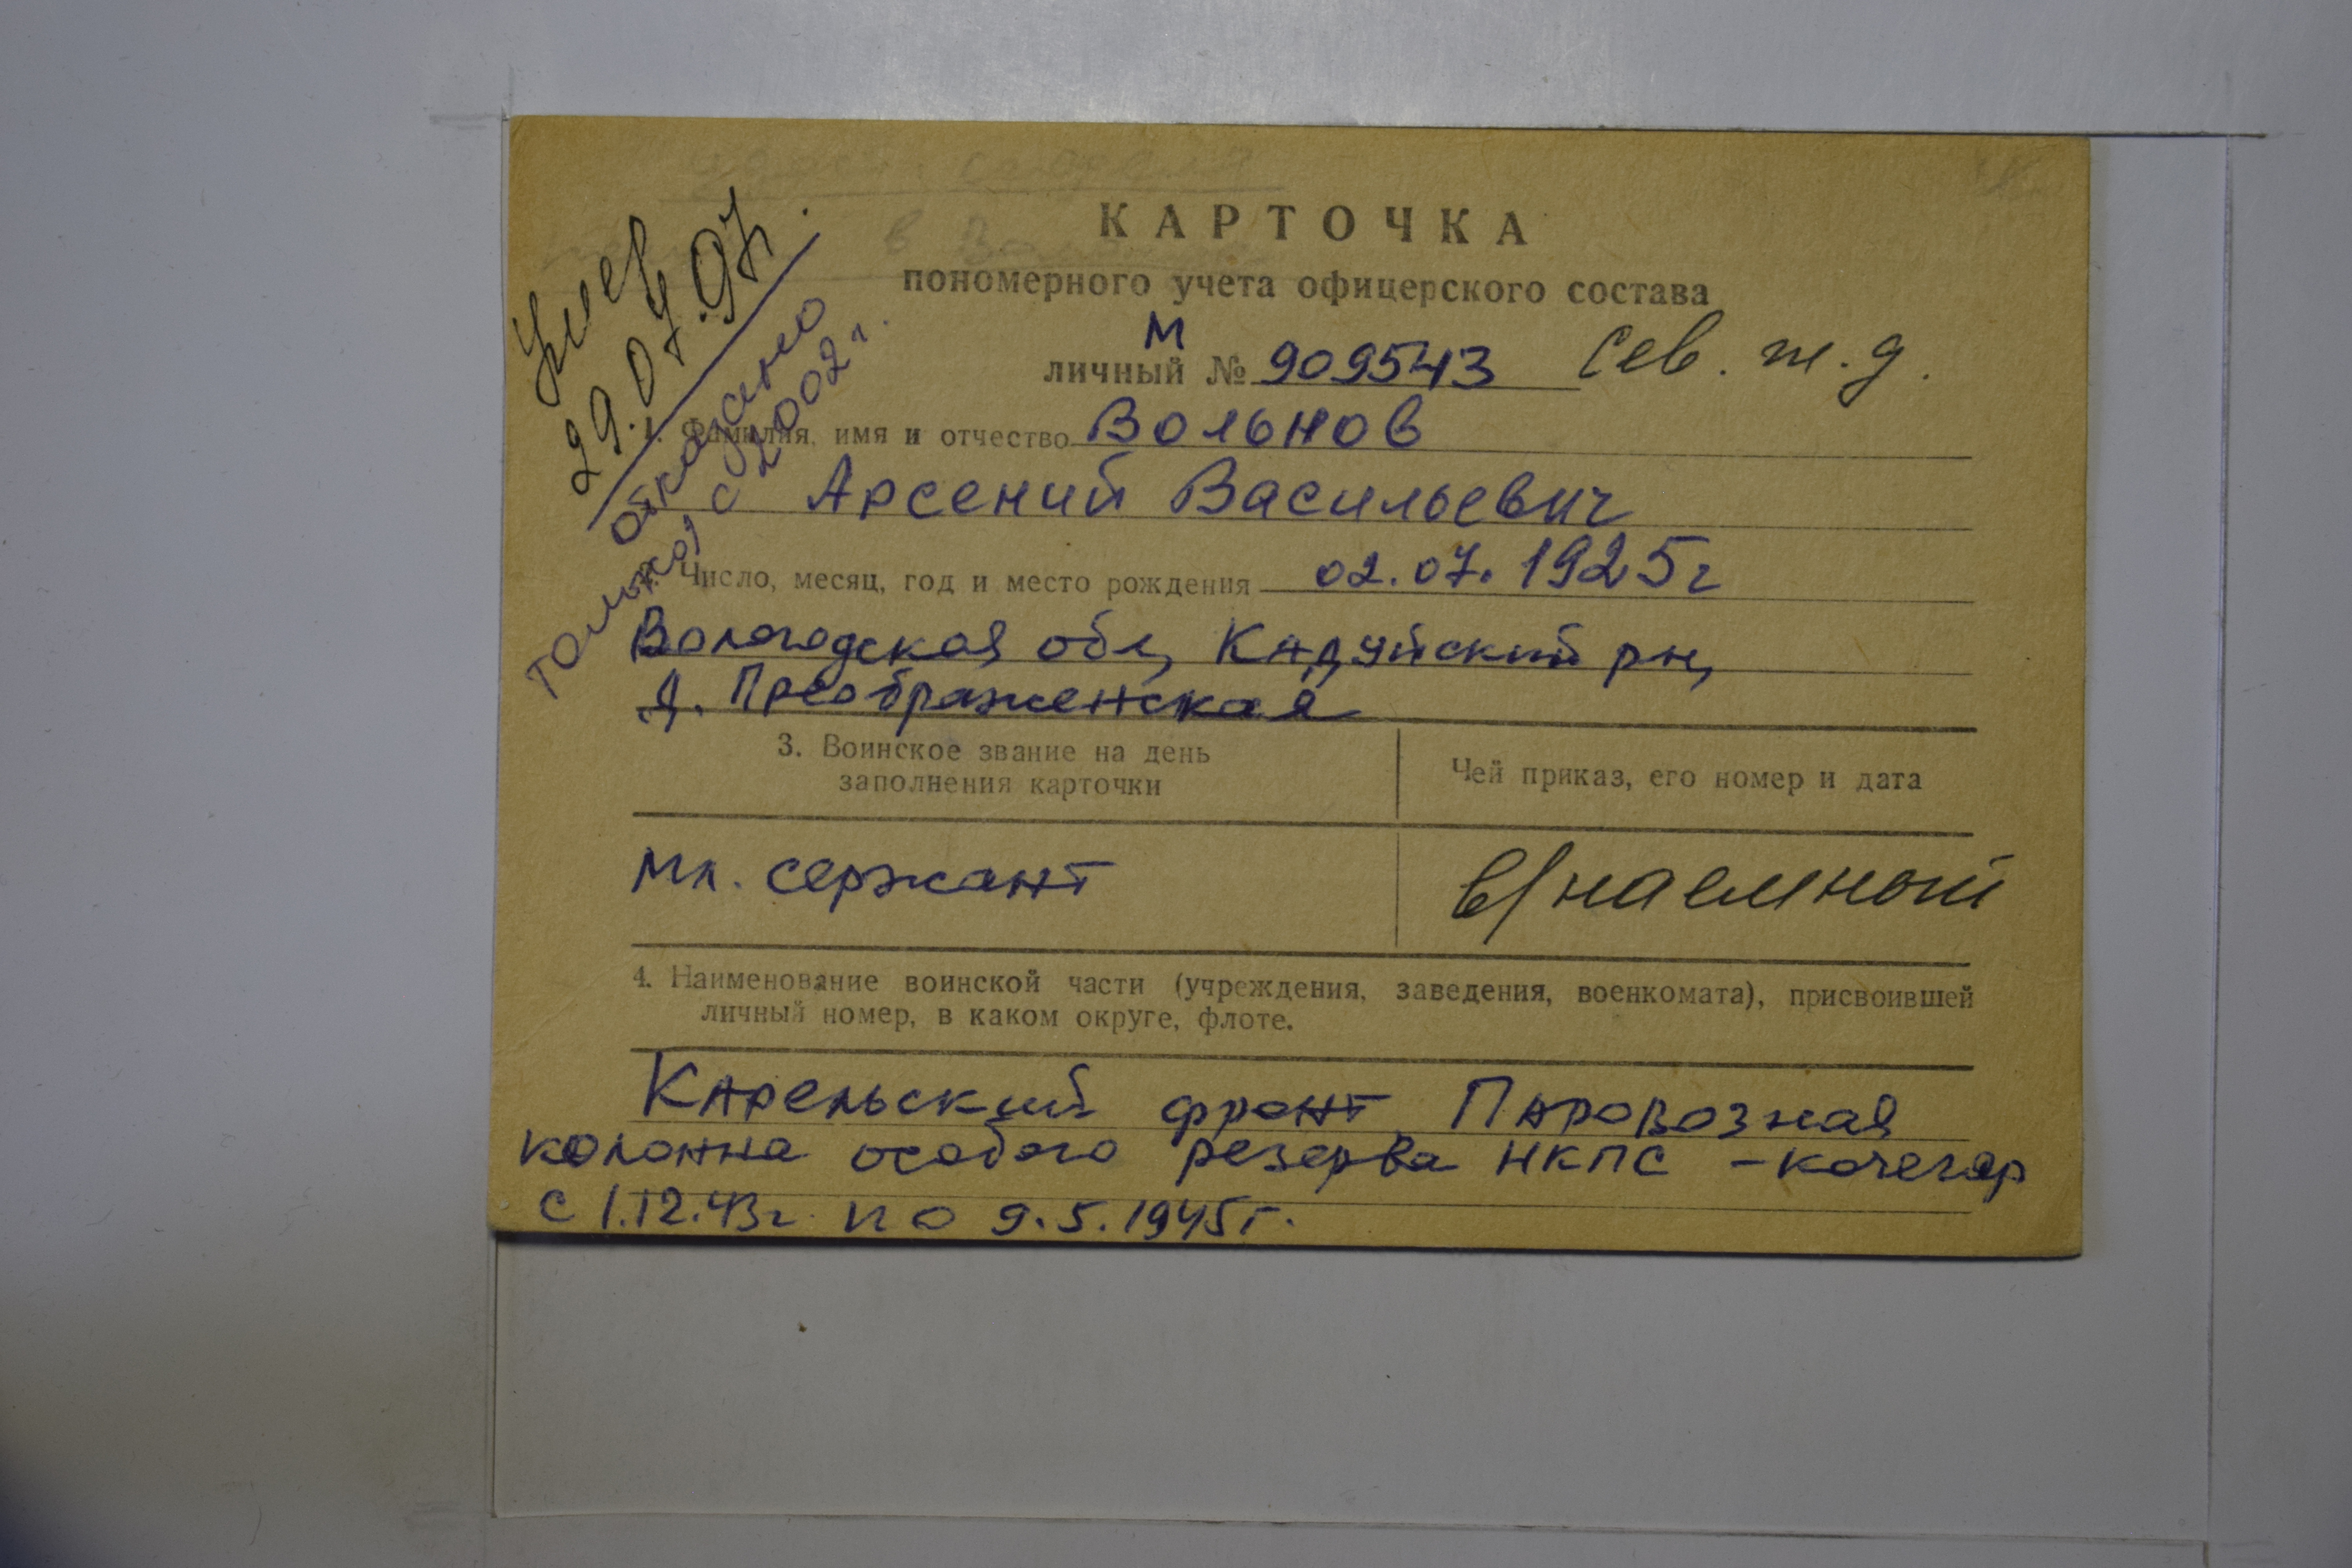 КАРТОЧКА
пономерного учета офицерского состава
М
личный № 909543 Сев. ж.д.
1. Фамилия, имя и отчество Вольнов
Арсений Васильевич
2. Число, месяц, год и место рождения 02.07.1925г
Вологодская обл, Кадуйский рн,
д. Преображенская
3. Воинское звание на день
заполнения карточки
Чей приказ, его номер и дата
мл. сержант
в/наемный
4. Наименование воинской части (учреждения, заведения, военкомата), присвоившей
личный номер, в каком округе, флоте.
Карельский фронт Паровозная
колонна особого резерва НКПС - кочегар
с 1.12.43г по 9.5.1945г.
Умер
29.07.97.
отказано
только с 2002г.